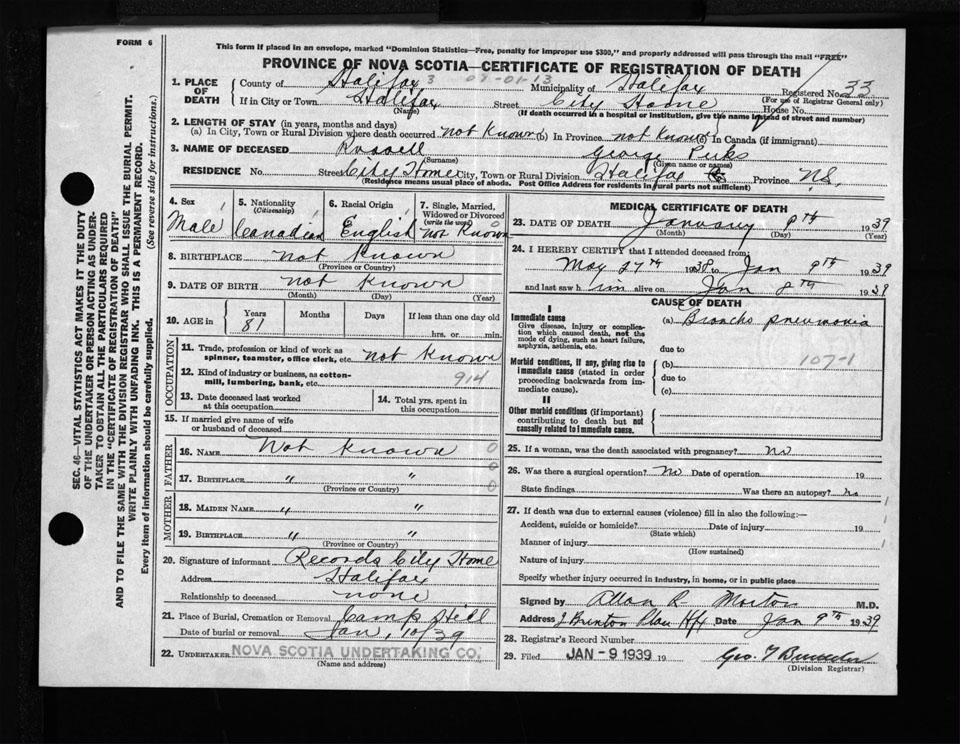 FORM 6
This form if placed in an envelope, marked "Dominion Statistics—Free, penalty for improper use $300," and properly addressed will pass through the mail "FREE"
PROVINCE OF NOVA SCOTIA—CERTIFICATE OF REGISTRATION OF DEATH
1. PLACE OF DEATH
County of Halifax 3 07-01-13 Municipality of Halifax Registered No. 33
(For use of Registrar General only)
If in City or Town Halifax Street City Home House No.
(Name) (If death occurred in a hospital or institution, give the name instead of street and number)
2. LENGTH OF STAY (in years, months and days)
(a) In City, Town or Rural Division where death occurred not Known (b) In Province not Known (c) In Canada (if immigrant)
3. NAME OF DECEASED Russell George Perks
(Surname) (Given name or names)
RESIDENCE No. Street City Home City, Town or Rural Division Halifax Province N.S.
(Residence means usual place of abode. Post Office Address for residents in rural parts not sufficient)
4. Sex Male
5. Nationality (Citizenship) Canadian
6. Racial Origin English
7. Single, Married, Widowed or Divorced (write the word) 0 not Known
8. BIRTHPLACE not Known
(Province or Country)
9. DATE OF BIRTH not Known
(Month) (Day) (Year)
10. AGE in Years Months Days If less than one day old
81 hrs. or min.
OCCUPATION
11. Trade, profession or kind of work as spinner, teamster, office clerk, etc. not Known
12. Kind of industry or business, as cotton-mill, lumbering, bank, etc. 914
13. Date deceased last worked at this occupation
14. Total yrs. spent in this occupation
15. If married give name of wife or husband of deceased
FATHER
16. NAME Not Known 0
0
17. BIRTHPLACE " " 0
(Province or Country)
MOTHER
18. MAIDEN NAME " "
19. BIRTHPLACE " "
(Province or Country)
20. Signature of informant Records City Home
Address Halifax
Relationship to deceased none
21. Place of Burial, Cremation or Removal Camp Hill
Date of burial or removal Jan, 10/39
22. UNDERTAKER NOVA SCOTIA UNDERTAKING CO.
(Name and address)
MEDICAL CERTIFICATE OF DEATH
23. DATE OF DEATH January 9th 1939
(Month) (Day) (Year)
24. I HEREBY CERTIFY that I attended deceased from:
May 27th 1938 to Jan 9th 1939
and last saw him alive on Jan 8th 1939
CAUSE OF DEATH
I
Immediate cause
Give disease, injury or complication which caused death, not the mode of dying, such as heart failure, asphyxia, asthenia, etc.
(a) Broncho pneumonia
due to
Morbid conditions, if any, giving rise to immediate cause (stated in order proceeding backwards from immediate cause).
(b) 107-1
due to
(c)
II
Other morbid conditions (if important) contributing to death but not causally related to immediate cause.
25. If a woman, was the death associated with pregnancy? no
26. Was there a surgical operation? No Date of operation 19
State findings Was there an autopsy? no
27. If death was due to external causes (violence) fill in also the following:—
Accident, suicide or homicide? Date of injury 19
(State which)
Manner of injury
(How sustained)
Nature of injury
Specify whether injury occurred in industry, in home, or in public place
Signed by Allan R Morton M.D.
Address Hfx Date Jan 9th 1939
28. Registrar's Record Number
29. Filed JAN - 9 1939 19
(Division Registrar)
SEC. 46—VITAL STATISTICS ACT MAKES IT THE DUTY
OF THE UNDERTAKER OR PERSON ACTING AS UNDER-
TAKER TO OBTAIN ALL THE PARTICULARS REQUIRED
IN THE "CERTIFICATE OF REGISTRATION OF DEATH"
AND TO FILE THE SAME WITH THE DIVISION REGISTRAR WHO SHALL ISSUE THE BURIAL PERMIT.
WRITE PLAINLY WITH UNFADING INK. THIS IS A PERMANENT RECORD.
Every item of information should be carefully supplied. (See reverse side for instructions.)